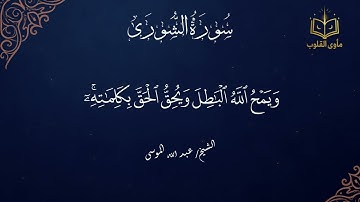 سُورَةُ الشُّورَىٰ
مأوى القلوب
وَيَمْحُ اللَّهُ الْبَاطِلَ وَيُحِقُّ الْحَقَّ بِكَلِمَاتِهِ ۚ
الشيخ/ عبد الله الموسى